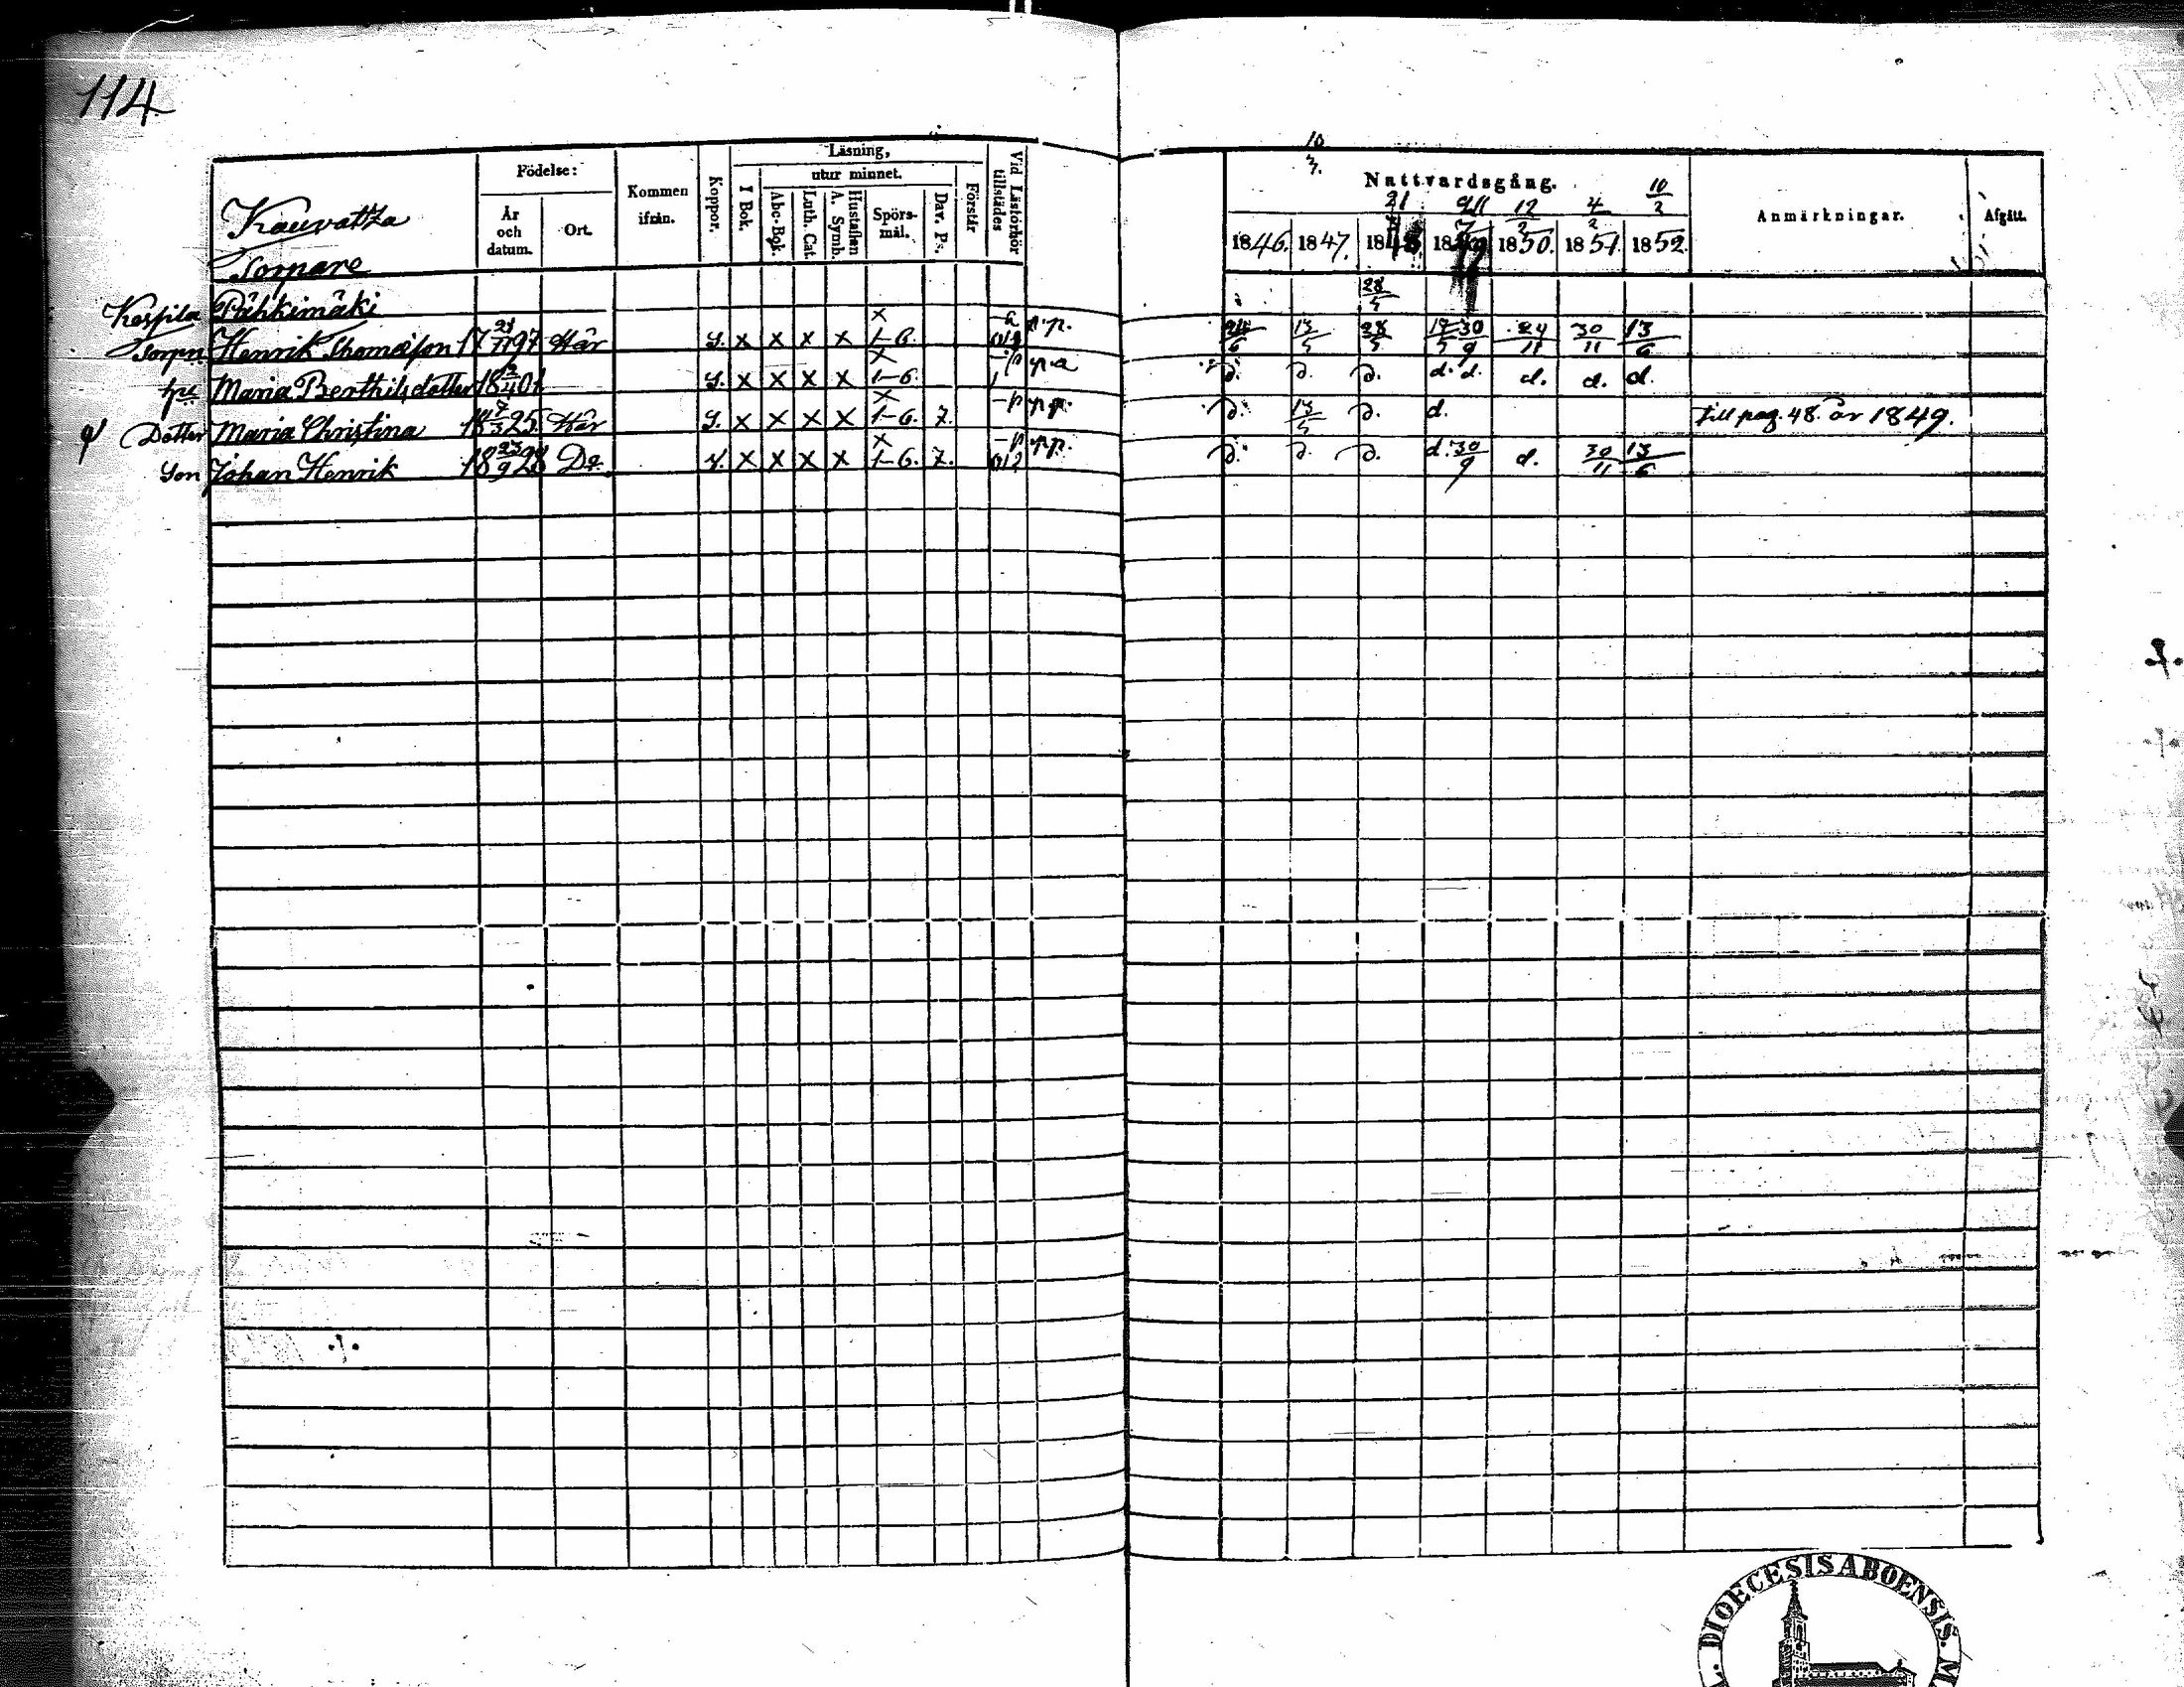 114
Födelse: Läsning, Vid Läsförhör tillstädes
utur minnet.
Kauvatza Kommen ifrån. Koppor. I Bok. Abc-Bok. Luth. Cat. Hustaflan A. Symb. Spörs-mål. Dav. Ps. Förstår
År och datum. Ort.
Sorpare
10
3.
Nattvardsgång. Anmärkningar. Afgått.
21 12/2 4/2 10/2
1846. 1847. 1848 1849 1850. 1851. 1852.
Pähkimäki 28/5
Henrik Thomasson 17 21/11 97 Här y. x x x x x 1-6. p.p. 24/6 13/5 28/5 30/9 24/11 30/11 13/6
Maria Berthilsdotter 18 /4 01 y. x x x x x 1-6. p.a d. d. d. d. d. d. d. d.
Dotter Maria Christina 18 /3 25. Här y. x x x x x 1-6. 7. -p p.p. d. 13/5 d. d. till pag. 48. år 1849.
Son Johan Henrik 18 23/9 28 Do. y. x x x x x 1-6. 7. -p p.p. d. d. d. d. 30/9 d. 30/11 13/6
DIOECESIS ABOENSIS.